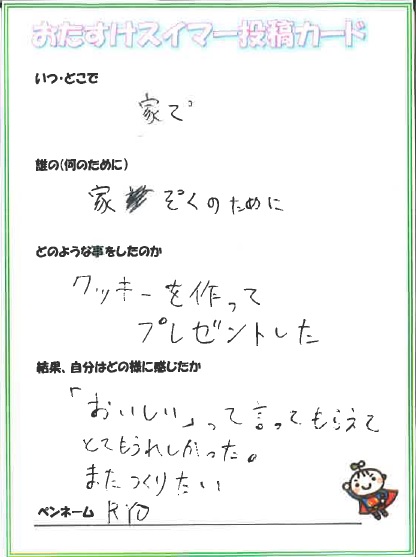 おたすけスイマー投稿カード
いつ・どこで
家で
誰の(何のために)
家ぞくのために
どのような事をしたのか
クッキーを作って
プレゼントした
結果、自分はどの様に感じたか
「おいしい」って言ってもらえて
とてもうれしかった。
またつくりたい
ペンネーム RYO